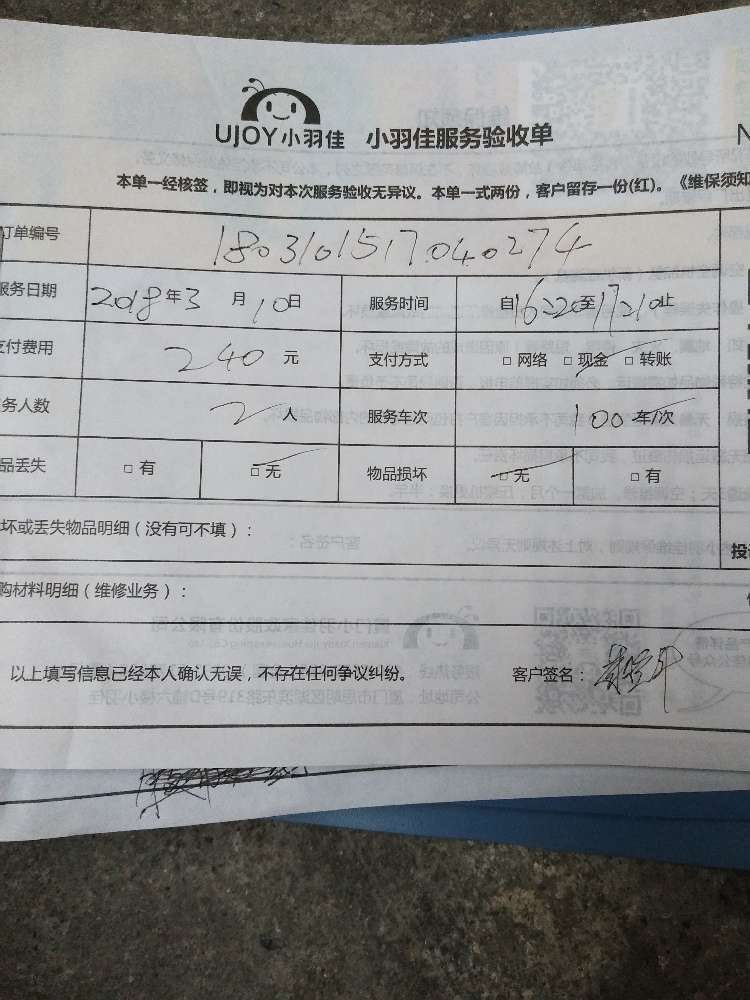 UJOY小羽佳 小羽佳服务验收单
本单一经核签，即视为对本次服务验收无异议。本单一式两份，客户留存一份(红)。《维保须知
订单编号 180310151704027​4
服务日期 2018年3月10日 服务时间 自16:20至17:10止
支付费用 240元 支付方式 □网络 □现金 □转账
务人数 2人 服务车次 100车/次
品丢失 □有 □无 物品损坏 □无 □有
坏或丢失物品明细（没有可不填）：
投
购材料明细（维修业务）：
以上填写信息已经本人确认无误，不存在任何争议纠纷。 客户签名：